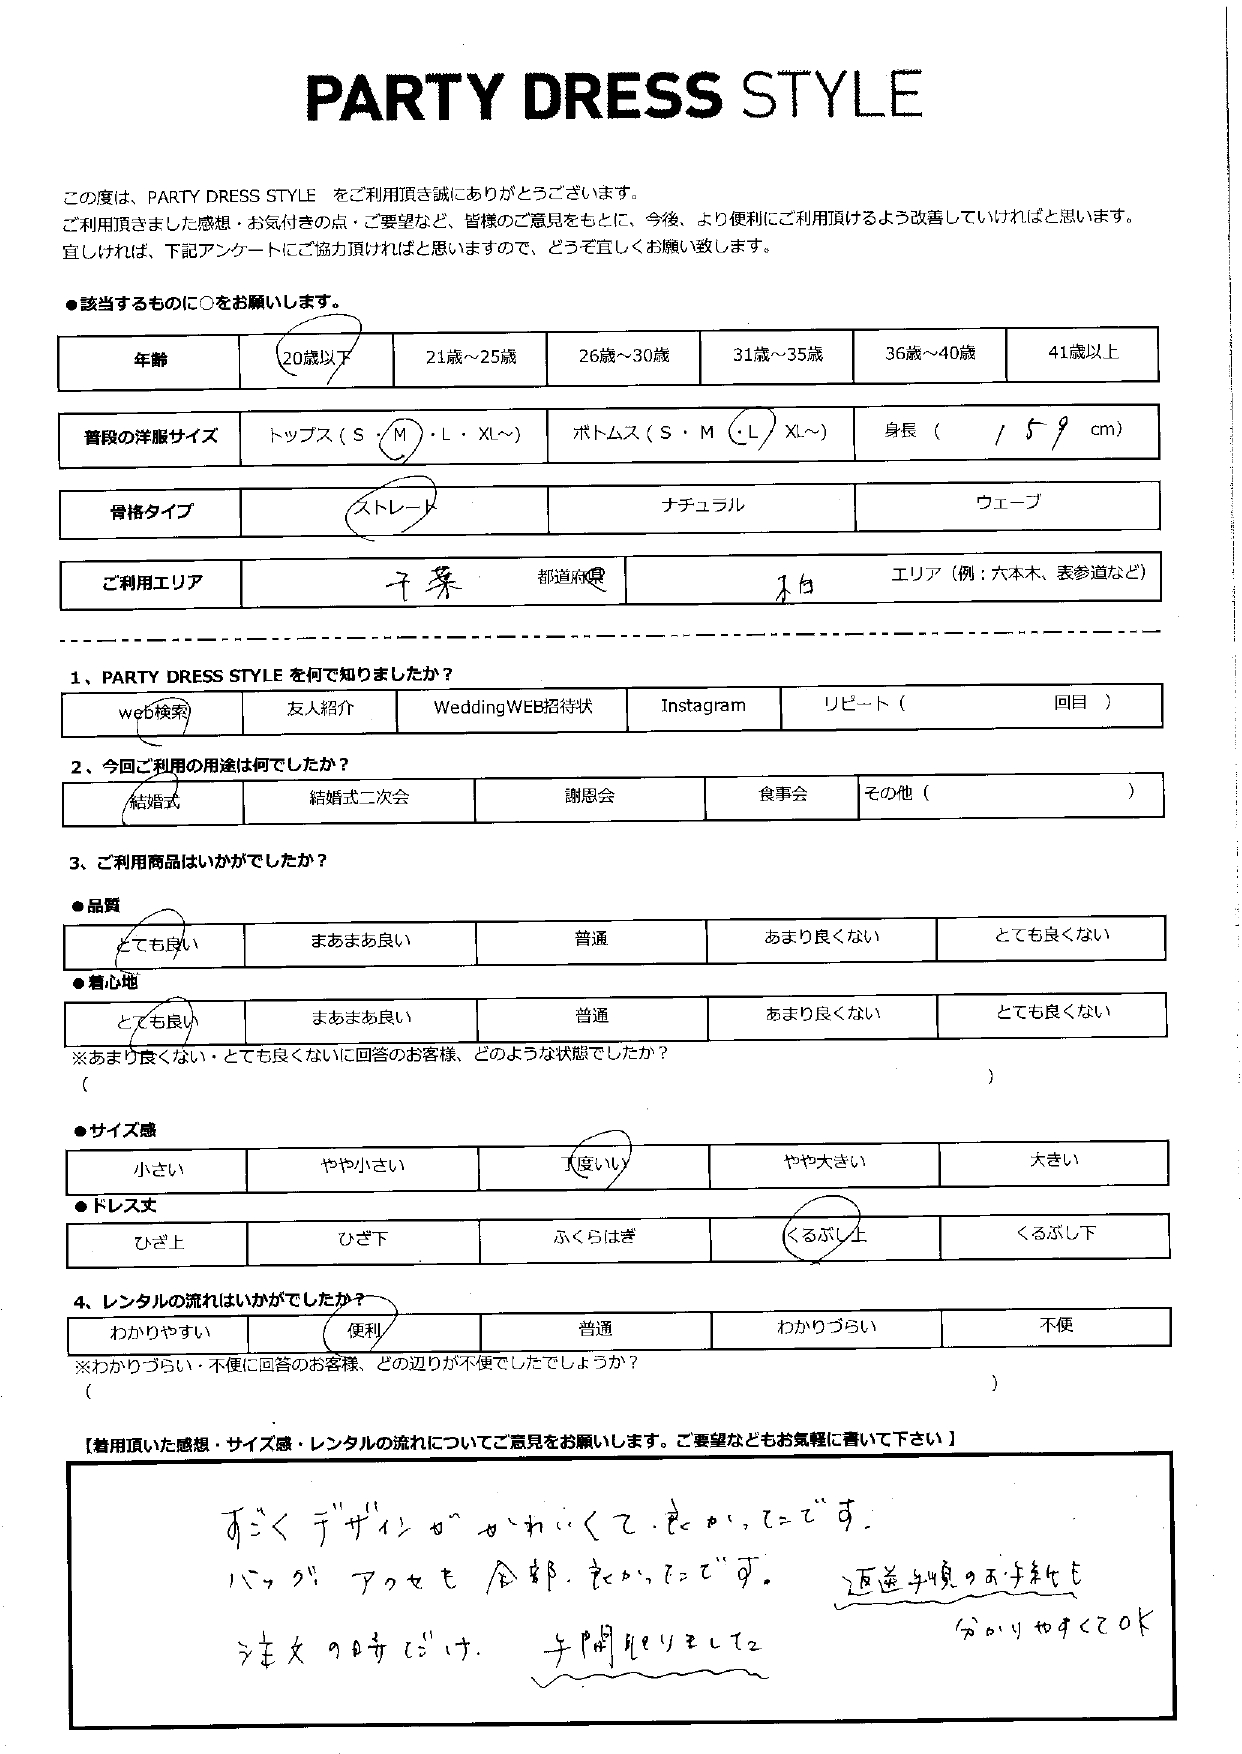 PARTY DRESS STYLE
この度は、PARTY DRESS STYLE をご利用頂き誠にありがとうございます。
ご利用頂きました感想・お気付きの点・ご要望など、皆様のご意見をもとに、今後、より便利にご利用頂けるよう改善していければと思います。
宜しければ、下記アンケートにご協力頂ければと思いますので、どうぞ宜しくお願い致します。
●該当するものに○をお願いします。
年齢 20歳以下 21歳～25歳 26歳～30歳 31歳～35歳 36歳～40歳 41歳以上
普段の洋服サイズ トップス ( S ・ M ・ L ・ XL～) ボトムス ( S ・ M ・ L XL～) 身長 ( 159 cm)
骨格タイプ ストレート ナチュラル ウェーブ
ご利用エリア 千葉 都道府県 柏 エリア (例：六本木、表参道など)
1、PARTY DRESS STYLE を何で知りましたか？
web検索 友人紹介 WeddingWEB招待状 Instagram リピート ( 回目 )
2、今回ご利用の用途は何でしたか？
結婚式 結婚式二次会 謝恩会 食事会 その他 ( )
3、ご利用商品はいかがでしたか？
●品質
とても良い まあまあ良い 普通 あまり良くない とても良くない
●着心地
とても良い まあまあ良い 普通 あまり良くない とても良くない
※あまり良くない・とても良くないに回答のお客様、どのような状態でしたか？
( )
●サイズ感
小さい やや小さい 丁度いい やや大きい 大きい
●ドレス丈
ひざ上 ひざ下 ふくらはぎ くるぶし上 くるぶし下
4、レンタルの流れはいかがでしたか？
わかりやすい 便利 普通 わかりづらい 不便
※わかりづらい・不便に回答のお客様、どの辺りが不便でしたでしょうか？
( )
【着用頂いた感想・サイズ感・レンタルの流れについてご意見をお願いします。ご要望などもお気軽に書いて下さい 】
すごくデザインがかわいくて.良かったです.
バッグ.アクセも全部.良かったです.
返送手順のお手紙も
分かりやすくてOK
注文の時だけ. 手間取りました